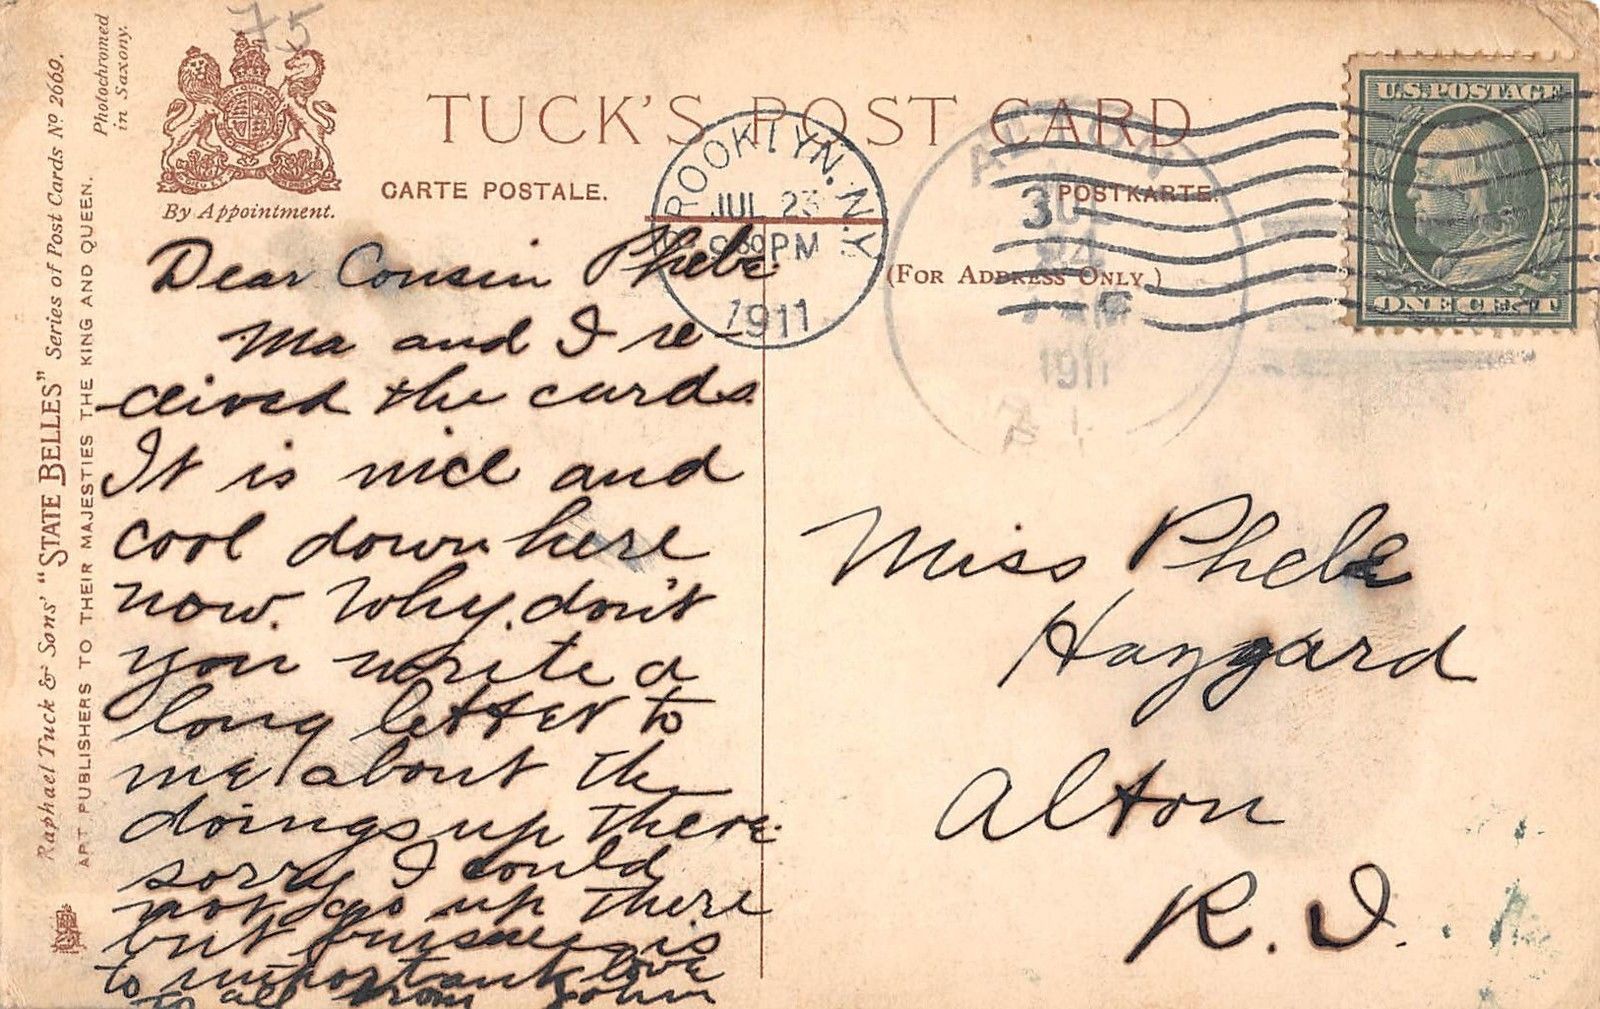 75
Raphael Tuck & Sons' "STATE BELLES" Series of Post Cards Nº 2669.
ART PUBLISHERS TO THEIR MAJESTIES THE KING AND QUEEN.
Photochromed
in Saxony.
By Appointment.
TUCK'S POST CARD
CARTE POSTALE.
POSTKARTE.
(FOR ADDRESS ONLY.)
BROOKLYN, N.Y.
JUL 23
9 30 PM
1911
ALTON
24
1911
R I
U.S. POSTAGE
ONE CENT
Dear Cousin Phebe
Ma and I re
-ceived the cards.
It is nice and
cool down here
now. Why don't
you write a
long letter to
me about the
doings up there.
sorry I could
not go up there
but is
to important love
to all from John
Miss Phebe
Hazzard
Alton
R. I.